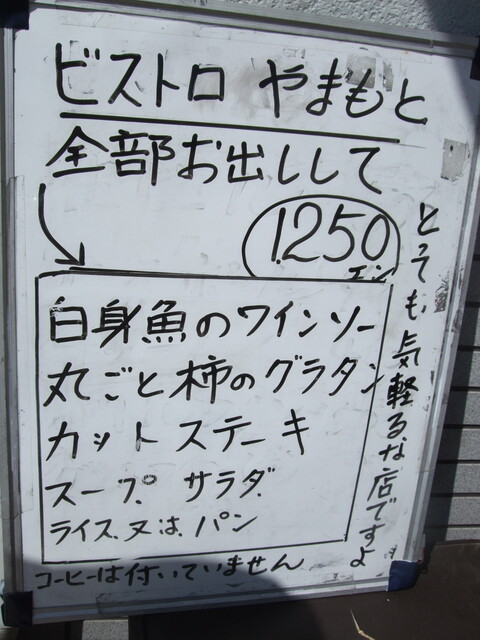 ビストロ やまもと
全部お出しして
1.250
エン
白身魚のワインソー
丸ごと柿のグラタン
カットステーキ
スープ サラダ
ライス.又は.パン
コーヒーは付いていません
とっても気軽るな店ですよ